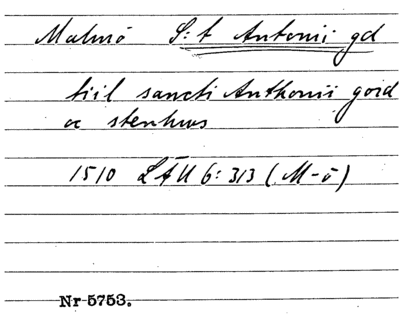 Malmö S:t Antonii gd
tiil sancti Anthonii gord
oc stenhws
1510 LÄU 6:313 (M-ö)
Nr 5753.